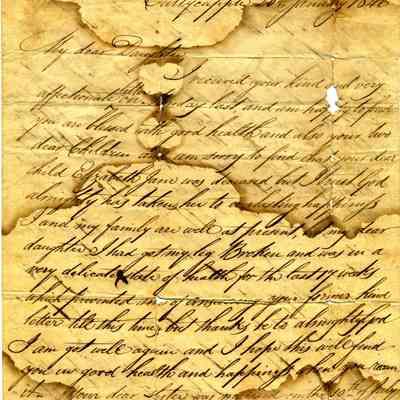 January
My dear Daughter
I received your kind and very
affectionate letter last, and am happy to find
you are blessed with good health and also your two
dear Children am sorry to find that your dear
child Elizabeth Jane was deceased but I trust God
almighty has taken her to everlasting happiness
I and my family are well at present, but my dear
daughter I had got my leg Broken and was in a
very delicate state of health for the last 17 weeks
which prevented me of your former kind
letter till this time, but thanks be to almighty God
I am got well again and I hope this will find
you in good health and happiness when you
it. Your dear Sister was married on the 30th of July